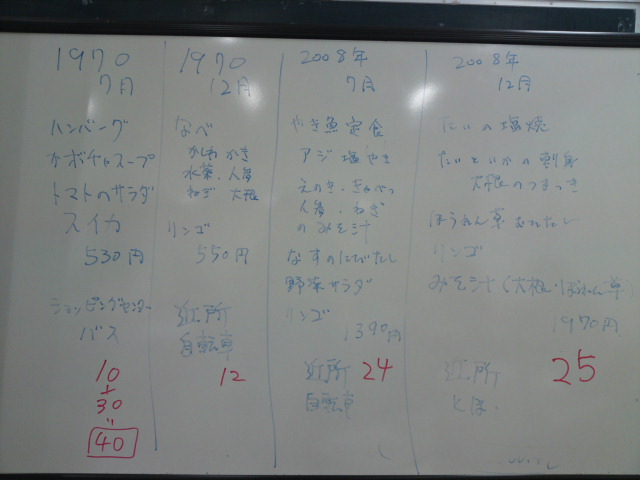 1970
7月
ハンバーグ
カボチャスープ
トマトのサラダ
スイカ
530円
ショッピングセンター
バス
10
+
30
"
40
1970
12月
なべ
かしわ かき
水菜、人参
ねぎ 大根
リンゴ
550円
近所
自転車
12
2008年
7月
やき魚定食
アジ塩やき
えのき・きゃべつ
人参・ねぎ
のみそ汁
なすのにびたし
野菜サラダ
リンゴ
1390円
近所 24
自転車
2008年
12月
たいの塩焼
たいといかの刺身
大根のつまつき
ほうれん草
リンゴ
みそ汁(大根・ほうれん草)
1970円
近所 25
とほ